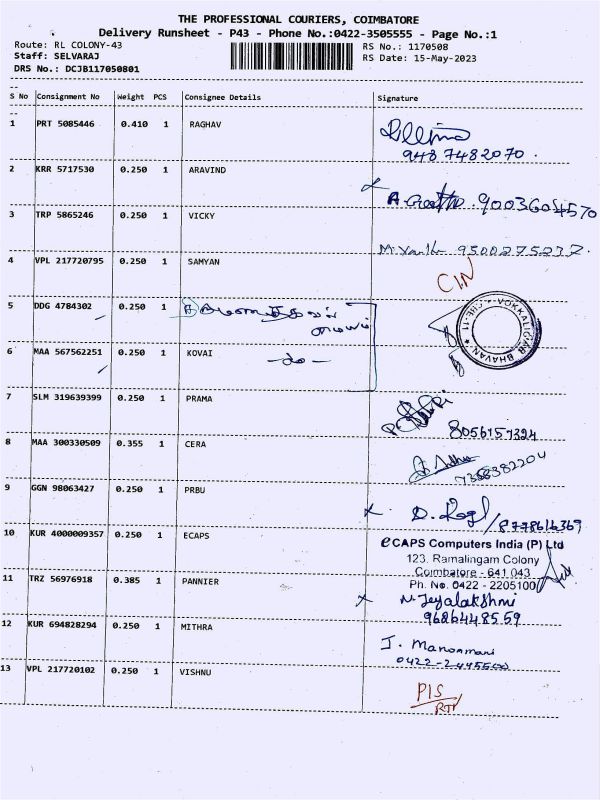 THE PROFESSIONAL COURIERS, COIMBATORE
Delivery Runsheet - P43 - Phone No.:0422-3505555 - Page No.:1
Route: RL COLONY-43
RS No.: 1170508
Staff: SELVARAJ
RS Date: 15-May-2023
DRS No.: DCJB117050801
S No Consignment No Weight PCS Consignee Details Signature
1 PRT 5085446 0.410 1 RAGHAV
9487482070.
2 KRR 5717530 0.250 1 ARAVIND
9003604570
3 TRP 5865246 0.250 1 VICKY
9500275237
4 VPL 217720795 0.250 1 SAMYAN
CIN
5 DDG 4784302 0.250 1
VOKKALIGAR BHAVAN
6 MAA 567562251 0.250 1 KOVAI
-do-
7 SLM 319639399 0.250 1 PRAMA
8056157324
8 MAA 300330509 0.355 1 CERA
7358382204
9 GGN 98063427 0.250 1 PRBU
8778616369
10 KUR 4000009357 0.250 1 ECAPS
eCAPS Computers India (P) Ltd
123, Ramalingam Colony
Coimbatore - 641 043
Ph. No. 0422 - 2205100
11 TRZ 56976918 0.385 1 PANNIER
N. Jeyalakshmi
9686448559
12 KUR 694828294 0.250 1 MITHRA
J. Manonmani
13 VPL 217720102 0.250 1 VISHNU